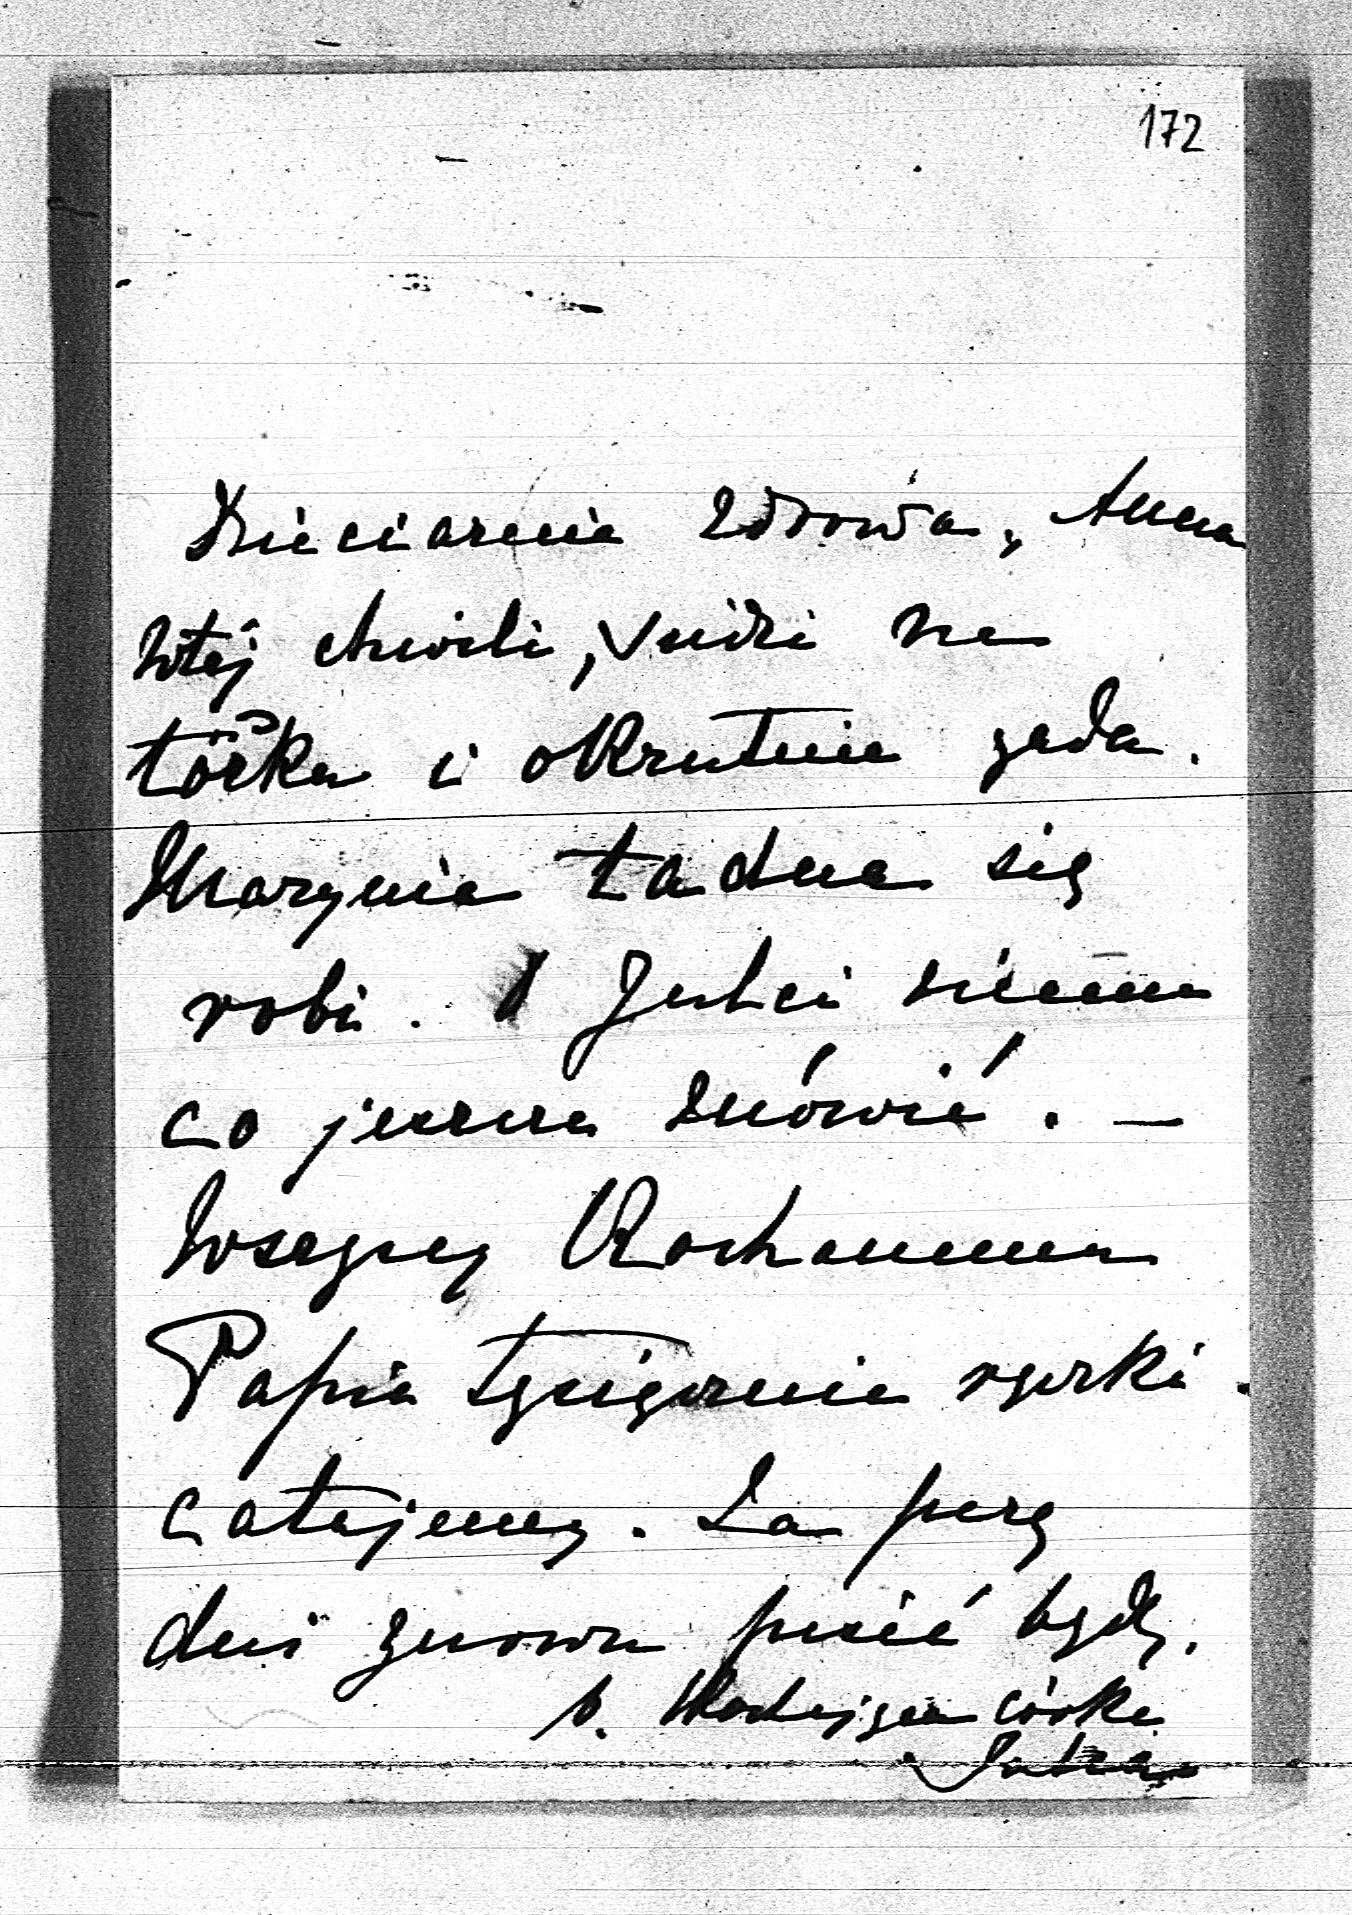 172
Dzieciarnia zdrowa, Anna
w tej chwili, siedzi na
łóżku i okrutnie gada.
Marynia ładna się
robi. Jest ci niema
co jeszcze mówić. —
Wszyscy Kochanemu
Papie tysiącznie rączki
całujemy. Za parę
dni znowu pisać będę.
córka